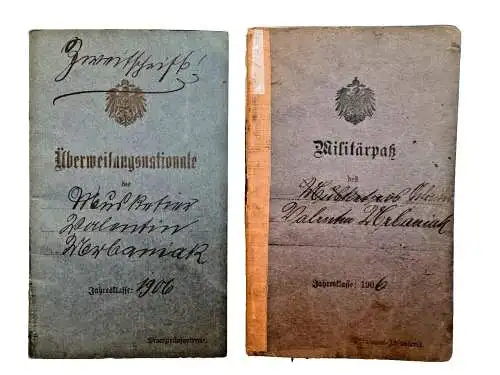 Zweitschrift!
Überweisungsnationale
des
Musketier
Valentin
Urbaniak
Jahresklasse: 1906
Militärpaß
des
Musketiers
Valentin Urbaniak
Jahresklasse: 1906